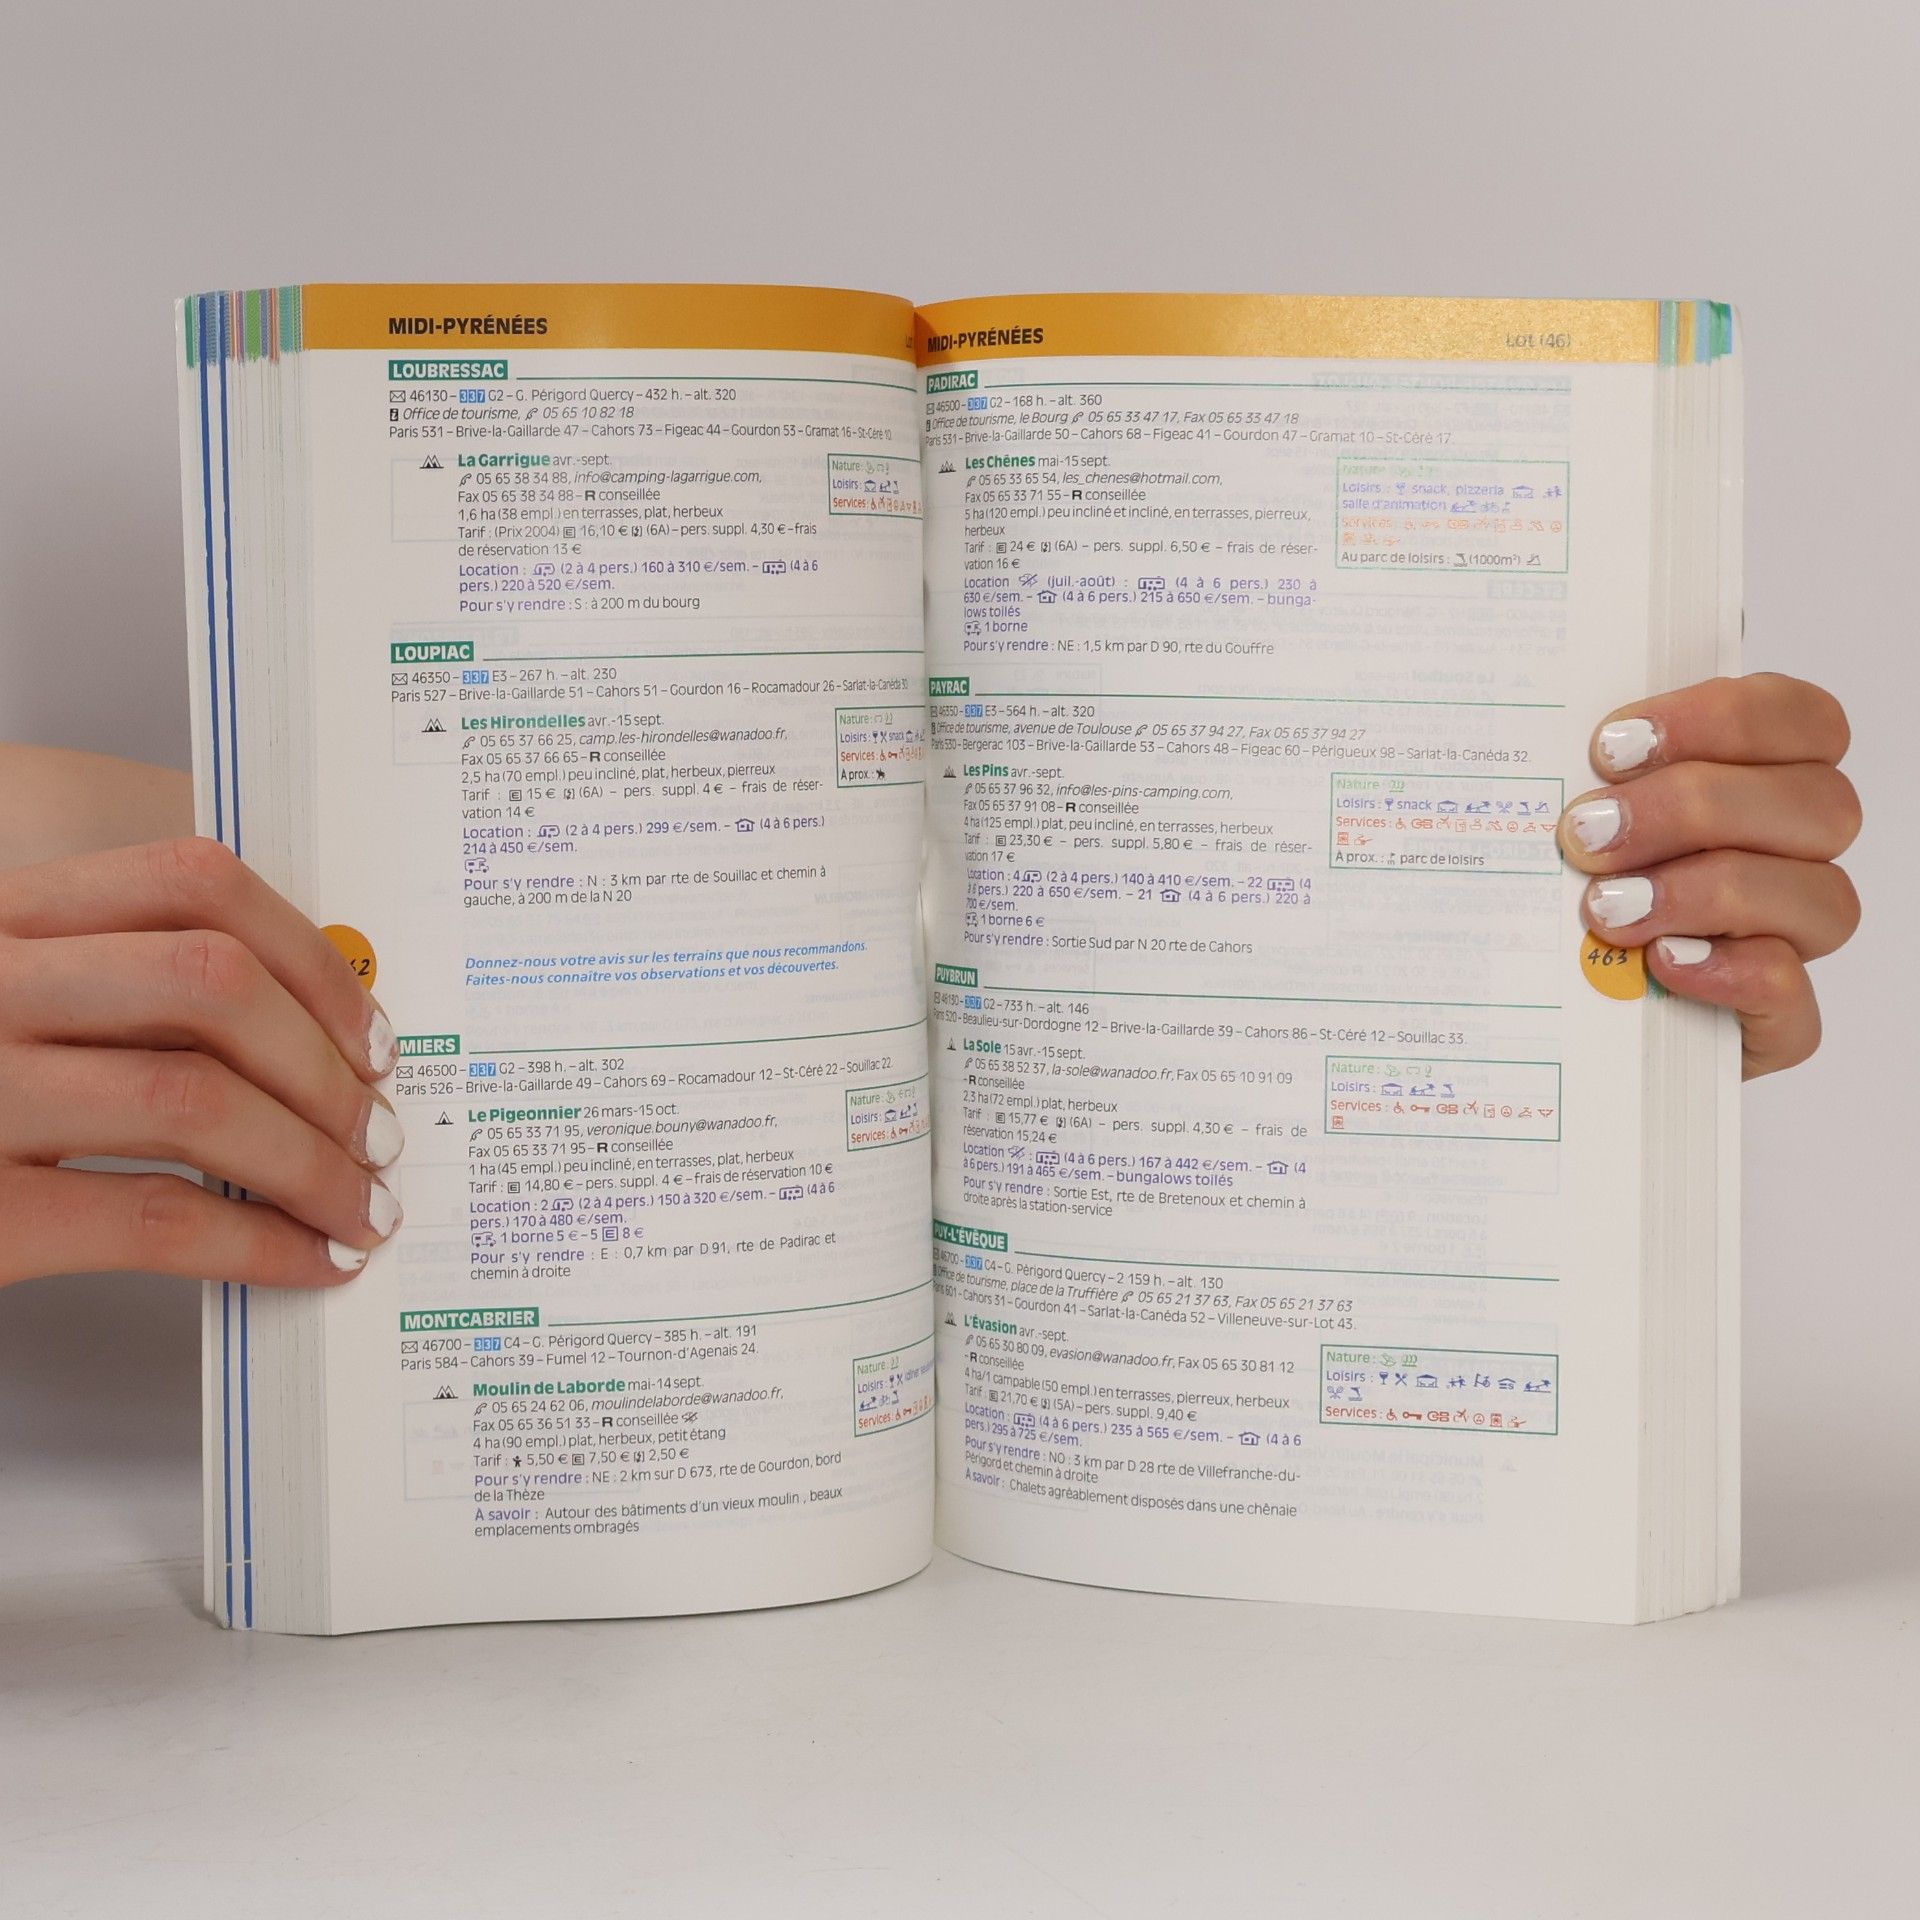 MIDI-PYRÉNÉES
LOUBRESSAC
46130 – 337 G2 – G. Périgord Quercy – 432 h. – alt. 320
Office de tourisme, 05 65 10 82 18
Paris 531 – Brive-la-Gaillarde 47 – Cahors 73 – Figeac 44 – Gourdon 53 – Gramat 16 – St-Céré 10
La Garrigue avr.-sept.
05 65 38 34 88, info@camping-lagarrigue.com,
Fax 05 65 38 34 88 – R conseillée
1,6 ha (38 empl.) en terrasses, plat, herbeux
Tarif : (Prix 2004) E 16,10 € (6A) – pers. suppl. 4,30 € – frais
de réservation 13 €
Location : (2 à 4 pers.) 160 à 310 €/sem. – (4 à 6
pers.) 220 à 520 €/sem.
Pour s'y rendre : S : à 200 m du bourg
Nature :
Loisirs :
Services :
LOUPIAC
46350 – 337 E3 – 267 h. – alt. 230
Paris 527 – Brive-la-Gaillarde 51 – Cahors 51 – Gourdon 16 – Rocamadour 26 – Sarlat-la-Canéda 30
Les Hirondelles avr.-15 sept.
05 65 37 66 25, camp.les-hirondelles@wanadoo.fr,
Fax 05 65 37 66 65 – R conseillée
2,5 ha (70 empl.) peu incliné, plat, herbeux, pierreux
Tarif : E 15 € (6A) – pers. suppl. 4 € – frais de réser-
vation 14 €
Location : (2 à 4 pers.) 299 €/sem. – (4 à 6 pers.)
214 à 450 €/sem.
Pour s'y rendre : N : 3 km par rte de Souillac et chemin à
gauche, à 200 m de la N 20
Nature :
Loisirs : snack
Services :
À prox. :
Donnez-nous votre avis sur les terrains que nous recommandons.
Faites-nous connaître vos observations et vos découvertes.
MIERS
46500 – 337 G2 – 398 h. – alt. 302
Paris 526 – Brive-la-Gaillarde 49 – Cahors 69 – Rocamadour 12 – St-Céré 22 – Souillac 22.
Le Pigeonnier 26 mars-15 oct.
05 65 33 71 95, veronique.bouny@wanadoo.fr,
Fax 05 65 33 71 95 – R conseillée
1 ha (45 empl.) peu incliné, en terrasses, plat, herbeux
Tarif : E 14,80 € – pers. suppl. 4 € – frais de réservation 10 €
Location : 2 (2 à 4 pers.) 150 à 320 €/sem. – (4 à 6
pers.) 170 à 480 €/sem.
1 borne 5 € – 5 E 8 €
Pour s'y rendre : E : 0,7 km par D 91, rte de Padirac et
chemin à droite
Nature :
Loisirs :
Services :
MONTCABRIER
46700 – 337 C4 – G. Périgord Quercy – 385 h. – alt. 191
Paris 584 – Cahors 39 – Fumel 12 – Tournon-d'Agenais 24.
Moulin de Laborde mai-14 sept.
05 65 24 62 06, moulindelaborde@wanadoo.fr,
Fax 05 65 36 51 33 – R conseillée
4 ha (90 empl.) plat, herbeux, petit étang
Tarif : 5,50 € E 7,50 € 2,50 €
Pour s'y rendre : NE : 2 km sur D 673, rte de Gourdon, bord
de la Thèze
À savoir : Autour des bâtiments d'un vieux moulin , beaux
emplacements ombragés
Nature :
Loisirs :
Services :
MIDI-PYRÉNÉES LOT (46)
PADIRAC
46500 – 337 G2 – 168 h. – alt. 360
Office de tourisme, le Bourg 05 65 33 47 17, Fax 05 65 33 47 18
Paris 531 – Brive-la-Gaillarde 50 – Cahors 68 – Figeac 41 – Gourdon 47 – Gramat 10 – St-Céré 17.
Les Chênes mai-15 sept.
05 65 33 65 54, les_chenes@hotmail.com,
Fax 05 65 33 71 55 – R conseillée
5 ha (120 empl.) peu incliné et incliné, en terrasses, pierreux,
herbeux
Tarif : E 24 € (6A) – pers. suppl. 6,50 € – frais de réser-
vation 16 €
Location (juil.-août) : (4 à 6 pers.) 230 à
630 €/sem. – (4 à 6 pers.) 215 à 650 €/sem. – bunga-
lows toilés
1 borne
Pour s'y rendre : NE : 1,5 km par D 90, rte du Gouffre
Nature :
Loisirs : snack, pizzeria
salle d'animation
Services :
Au parc de loisirs : (1000m²)
PAYRAC
46350 – 337 E3 – 564 h. – alt. 320
Office de tourisme, avenue de Toulouse 05 65 37 94 27, Fax 05 65 37 94 27
Paris 530 – Bergerac 103 – Brive-la-Gaillarde 53 – Cahors 48 – Figeac 60 – Périgueux 98 – Sarlat-la-Canéda 32.
Les Pins avr.-sept.
05 65 37 96 32, info@les-pins-camping.com,
Fax 05 65 37 91 08 – R conseillée
4 ha (125 empl.) plat, peu incliné, en terrasses, herbeux
Tarif : E 23,30 € – pers. suppl. 5,80 € – frais de réser-
vation 17 €
Location : 4 (2 à 4 pers.) 140 à 410 €/sem. – 22 (4
à 6 pers.) 220 à 650 €/sem. – 21 (4 à 6 pers.) 220 à
700 €/sem.
1 borne 6 €
Pour s'y rendre : Sortie Sud par N 20 rte de Cahors
Nature :
Loisirs : snack
Services :
À prox. : parc de loisirs
463
PUYBRUN
46130 – 337 G2 – 733 h. – alt. 146
Paris 520 – Beaulieu-sur-Dordogne 12 – Brive-la-Gaillarde 39 – Cahors 86 – St-Céré 12 – Souillac 33.
La Sole 15 avr.-15 sept.
05 65 38 52 37, la-sole@wanadoo.fr, Fax 05 65 10 91 09
- R conseillée
2,3 ha (72 empl.) plat, herbeux
Tarif : E 15,77 € (6A) – pers. suppl. 4,30 € – frais de
réservation 15,24 €
Location : (4 à 6 pers.) 167 à 442 €/sem. – (4
à 6 pers.) 191 à 465 €/sem. – bungalows toilés
Pour s'y rendre : Sortie Est, rte de Bretenoux et chemin à
droite après la station-service
Nature :
Loisirs :
Services :
PUY-L'ÉVÊQUE
46700 – 337 C4 – G. Périgord Quercy – 2 159 h. – alt. 130
Office de tourisme, place de la Truffière 05 65 21 37 63, Fax 05 65 21 37 63
Paris 601 – Cahors 31 – Gourdon 41 – Sarlat-la-Canéda 52 – Villeneuve-sur-Lot 43.
L'Évasion avr.-sept.
05 65 30 80 09, evasion@wanadoo.fr, Fax 05 65 30 81 12
- R conseillée
4 ha/1 campable (50 empl.) en terrasses, pierreux, herbeux
Tarif : E 21,70 € (5A) – pers. suppl. 9,40 €
Location : (4 à 6 pers.) 235 à 565 €/sem. – (4 à 6
pers.) 295 à 725 €/sem.
Pour s'y rendre : NO : 3 km par D 28 rte de Villefranche-du-
Périgord et chemin à droite
À savoir : Chalets agréablement disposés dans une chênaie
Nature :
Loisirs :
Services :